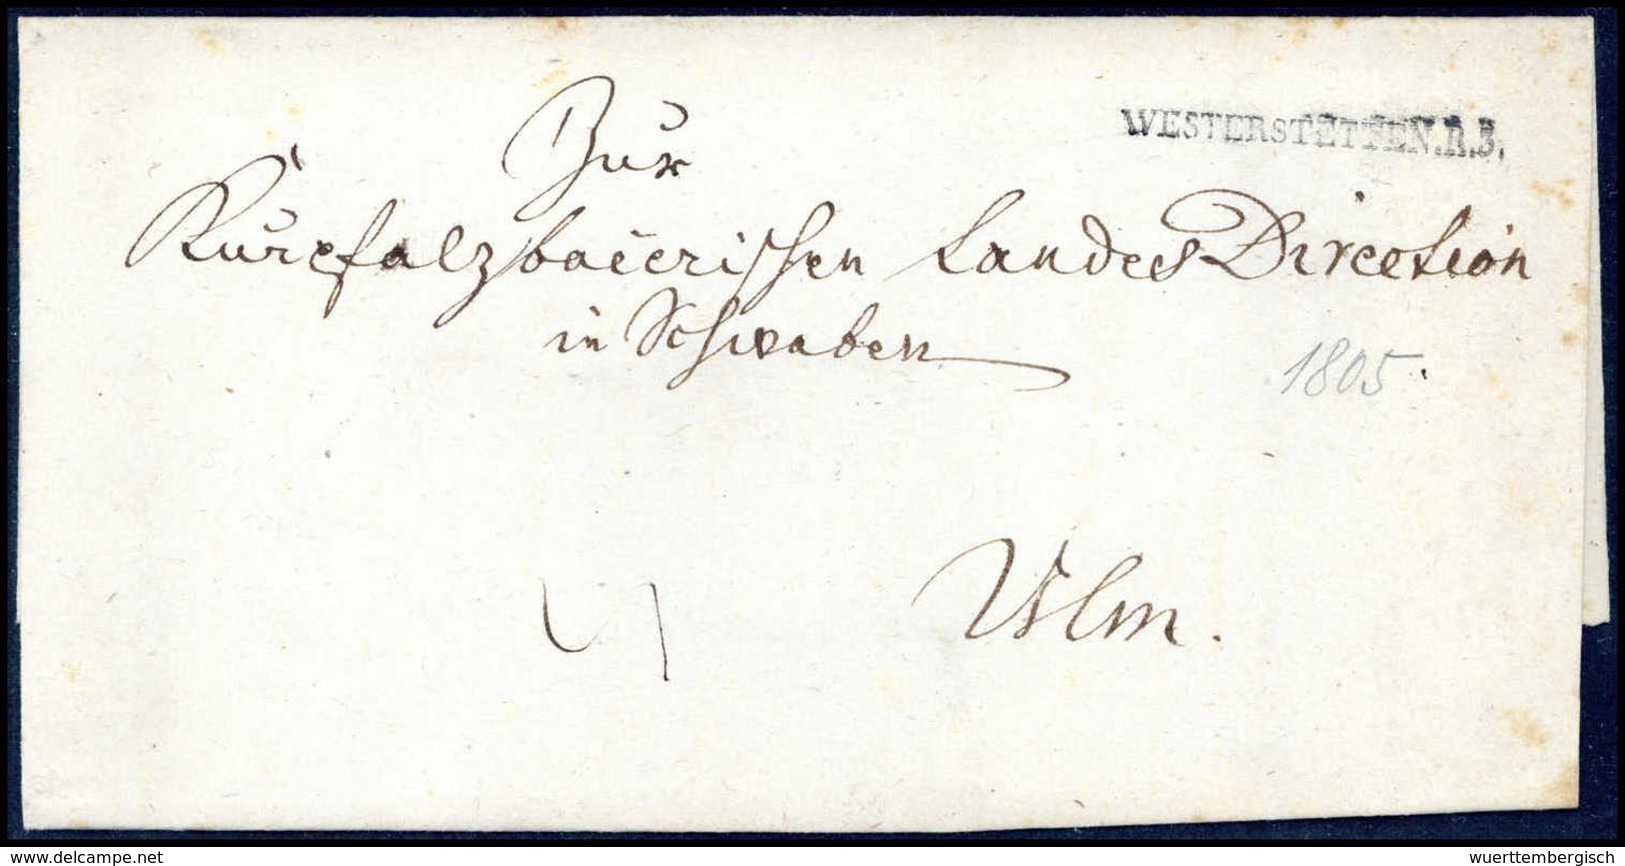 WESTERSTETTEN.R.3.
Zur
Kurpfalzbaierischen Landes Direction
in Schwaben
1805
Ulm.
© delcampe.net
wuerttembergisch